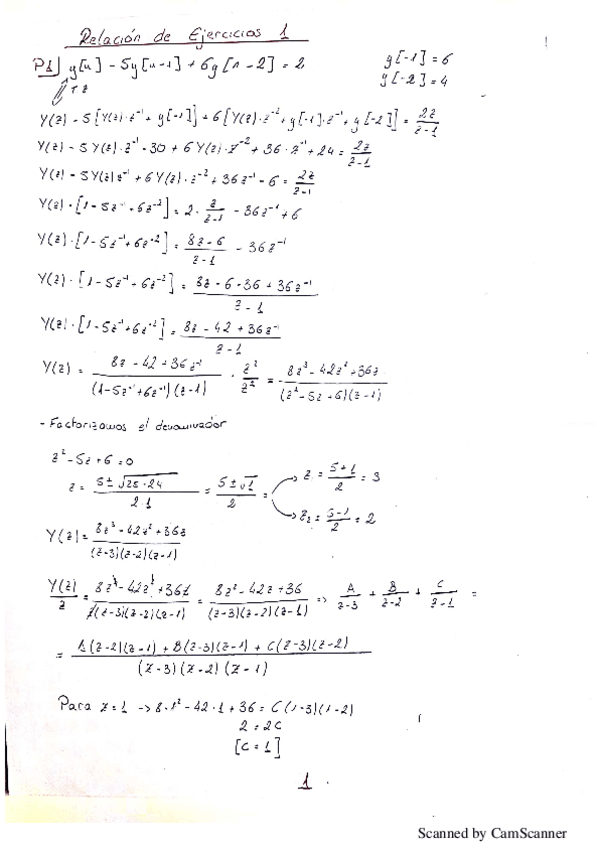 Relación de Ejercicios 1
P1] y[n] - 5y[n-1] + 6y[n-2] = 2    y[-1] = 6
y[-2] = 4
TZ
Y(z) - 5[Y(z)·z⁻¹ + y[-1]] + 6[Y(z)·z⁻² + y[-1]·z⁻¹ + y[-2]] = 2z/(z-1)
Y(z) - 5Y(z)·z⁻¹ - 30 + 6Y(z)·z⁻² + 36·z⁻¹ + 24 = 2z/(z-1)
Y(z) - 5Y(z)z⁻¹ + 6Y(z)·z⁻² + 36z⁻¹ - 6 = 2z/(z-1)
Y(z)·[1-5z⁻¹+6z⁻²] = 2·z/(z-1) - 36z⁻¹ + 6
Y(z)·[1-5z⁻¹+6z⁻²] = (8z-6)/(z-1) - 36z⁻¹
Y(z)·[1-5z⁻¹+6z⁻²] = (8z-6-36+36z⁻¹)/(z-1)
Y(z)·[1-5z⁻¹+6z⁻²] = (8z-42+36z⁻¹)/(z-1)
Y(z) = (8z-42+36z⁻¹)/((1-5z⁻¹+6z⁻¹)(z-1)) · z²/z² = (8z³-42z²+36z)/((z²-5z+6)(z-1))
- Factorizamos el denominador
z²-5z+6=0
z = (5±√25-24)/(2·1) = (5±√1)/2 = → z = (5+1)/2 = 3
→ z₂ = (5-1)/2 = 2
Y(z) = (8z³-42z²+36z)/((z-3)(z-2)(z-1))
Y(z)/z = (8z³-42z²+36z)/(z(z-3)(z-2)(z-1)) = (8z²-42z+36)/((z-3)(z-2)(z-1)) => A/(z-3) + B/(z-2) + C/(z-1) =
= (A(z-2)(z-1) + B(z-3)(z-1) + C(z-3)(z-2))/((z-3)(z-2)(z-1))
Para z=1 -> 8·1²-42·1+36 = C(1-3)(1-2)
2 = 2C
[C = 1]
1
Scanned by CamScanner